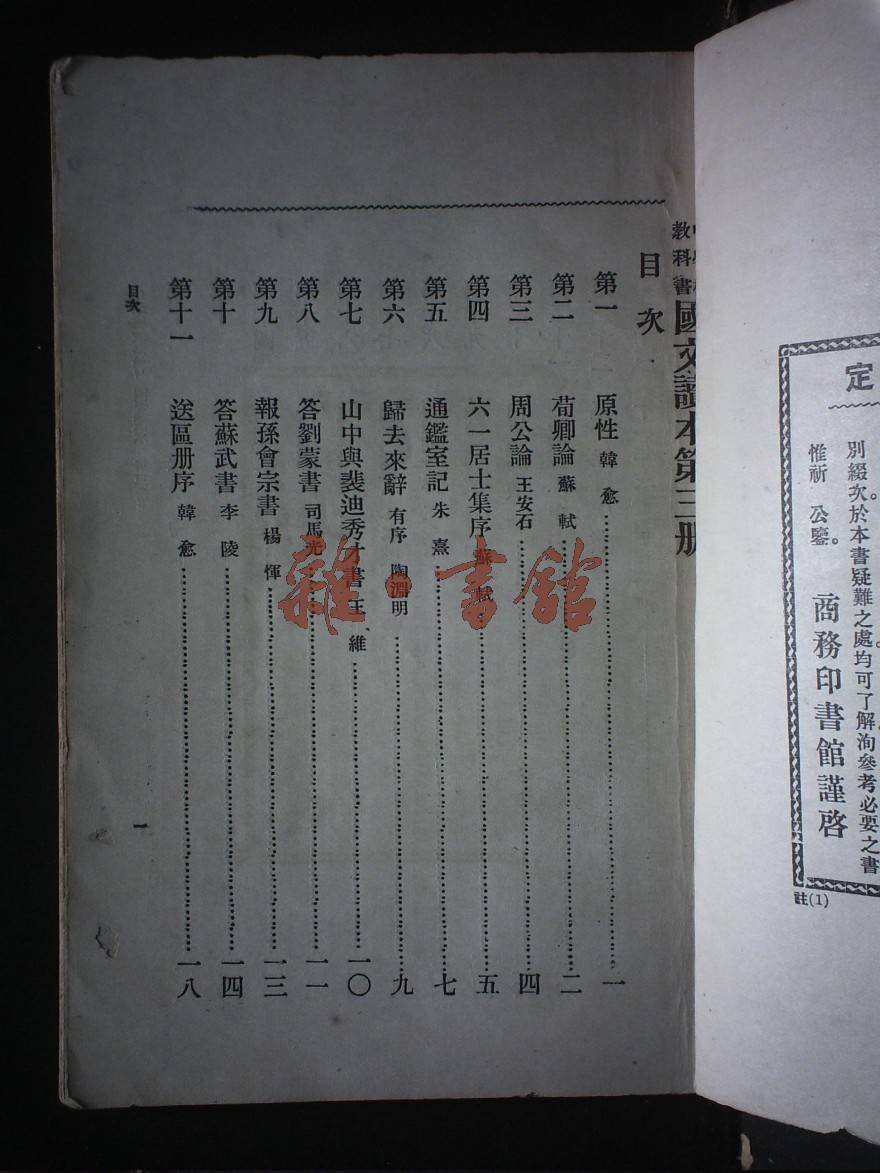 定
別綴次於本書疑難之處均可了解洵參考必要之書
惟祈 公鑒。
商務印書館謹啓
註(1)
教科書
國文讀本第三册
目次
第一 原性 韓愈 一
第二 荀卿論 蘇軾 二
第三 周公論 王安石 四
第四 六一居士集序 蘇軾 五
第五 通鑑室記 朱熹 七
第六 歸去來辭 有序 陶淵明 九
第七 山中與裴迪秀才書 王維 一〇
第八 答劉蒙書 司馬光 一一
第九 報孫會宗書 楊惲 一三
第十 答蘇武書 李陵 一四
第十一 送區册序 韓愈 一八
目次
一
雜書館